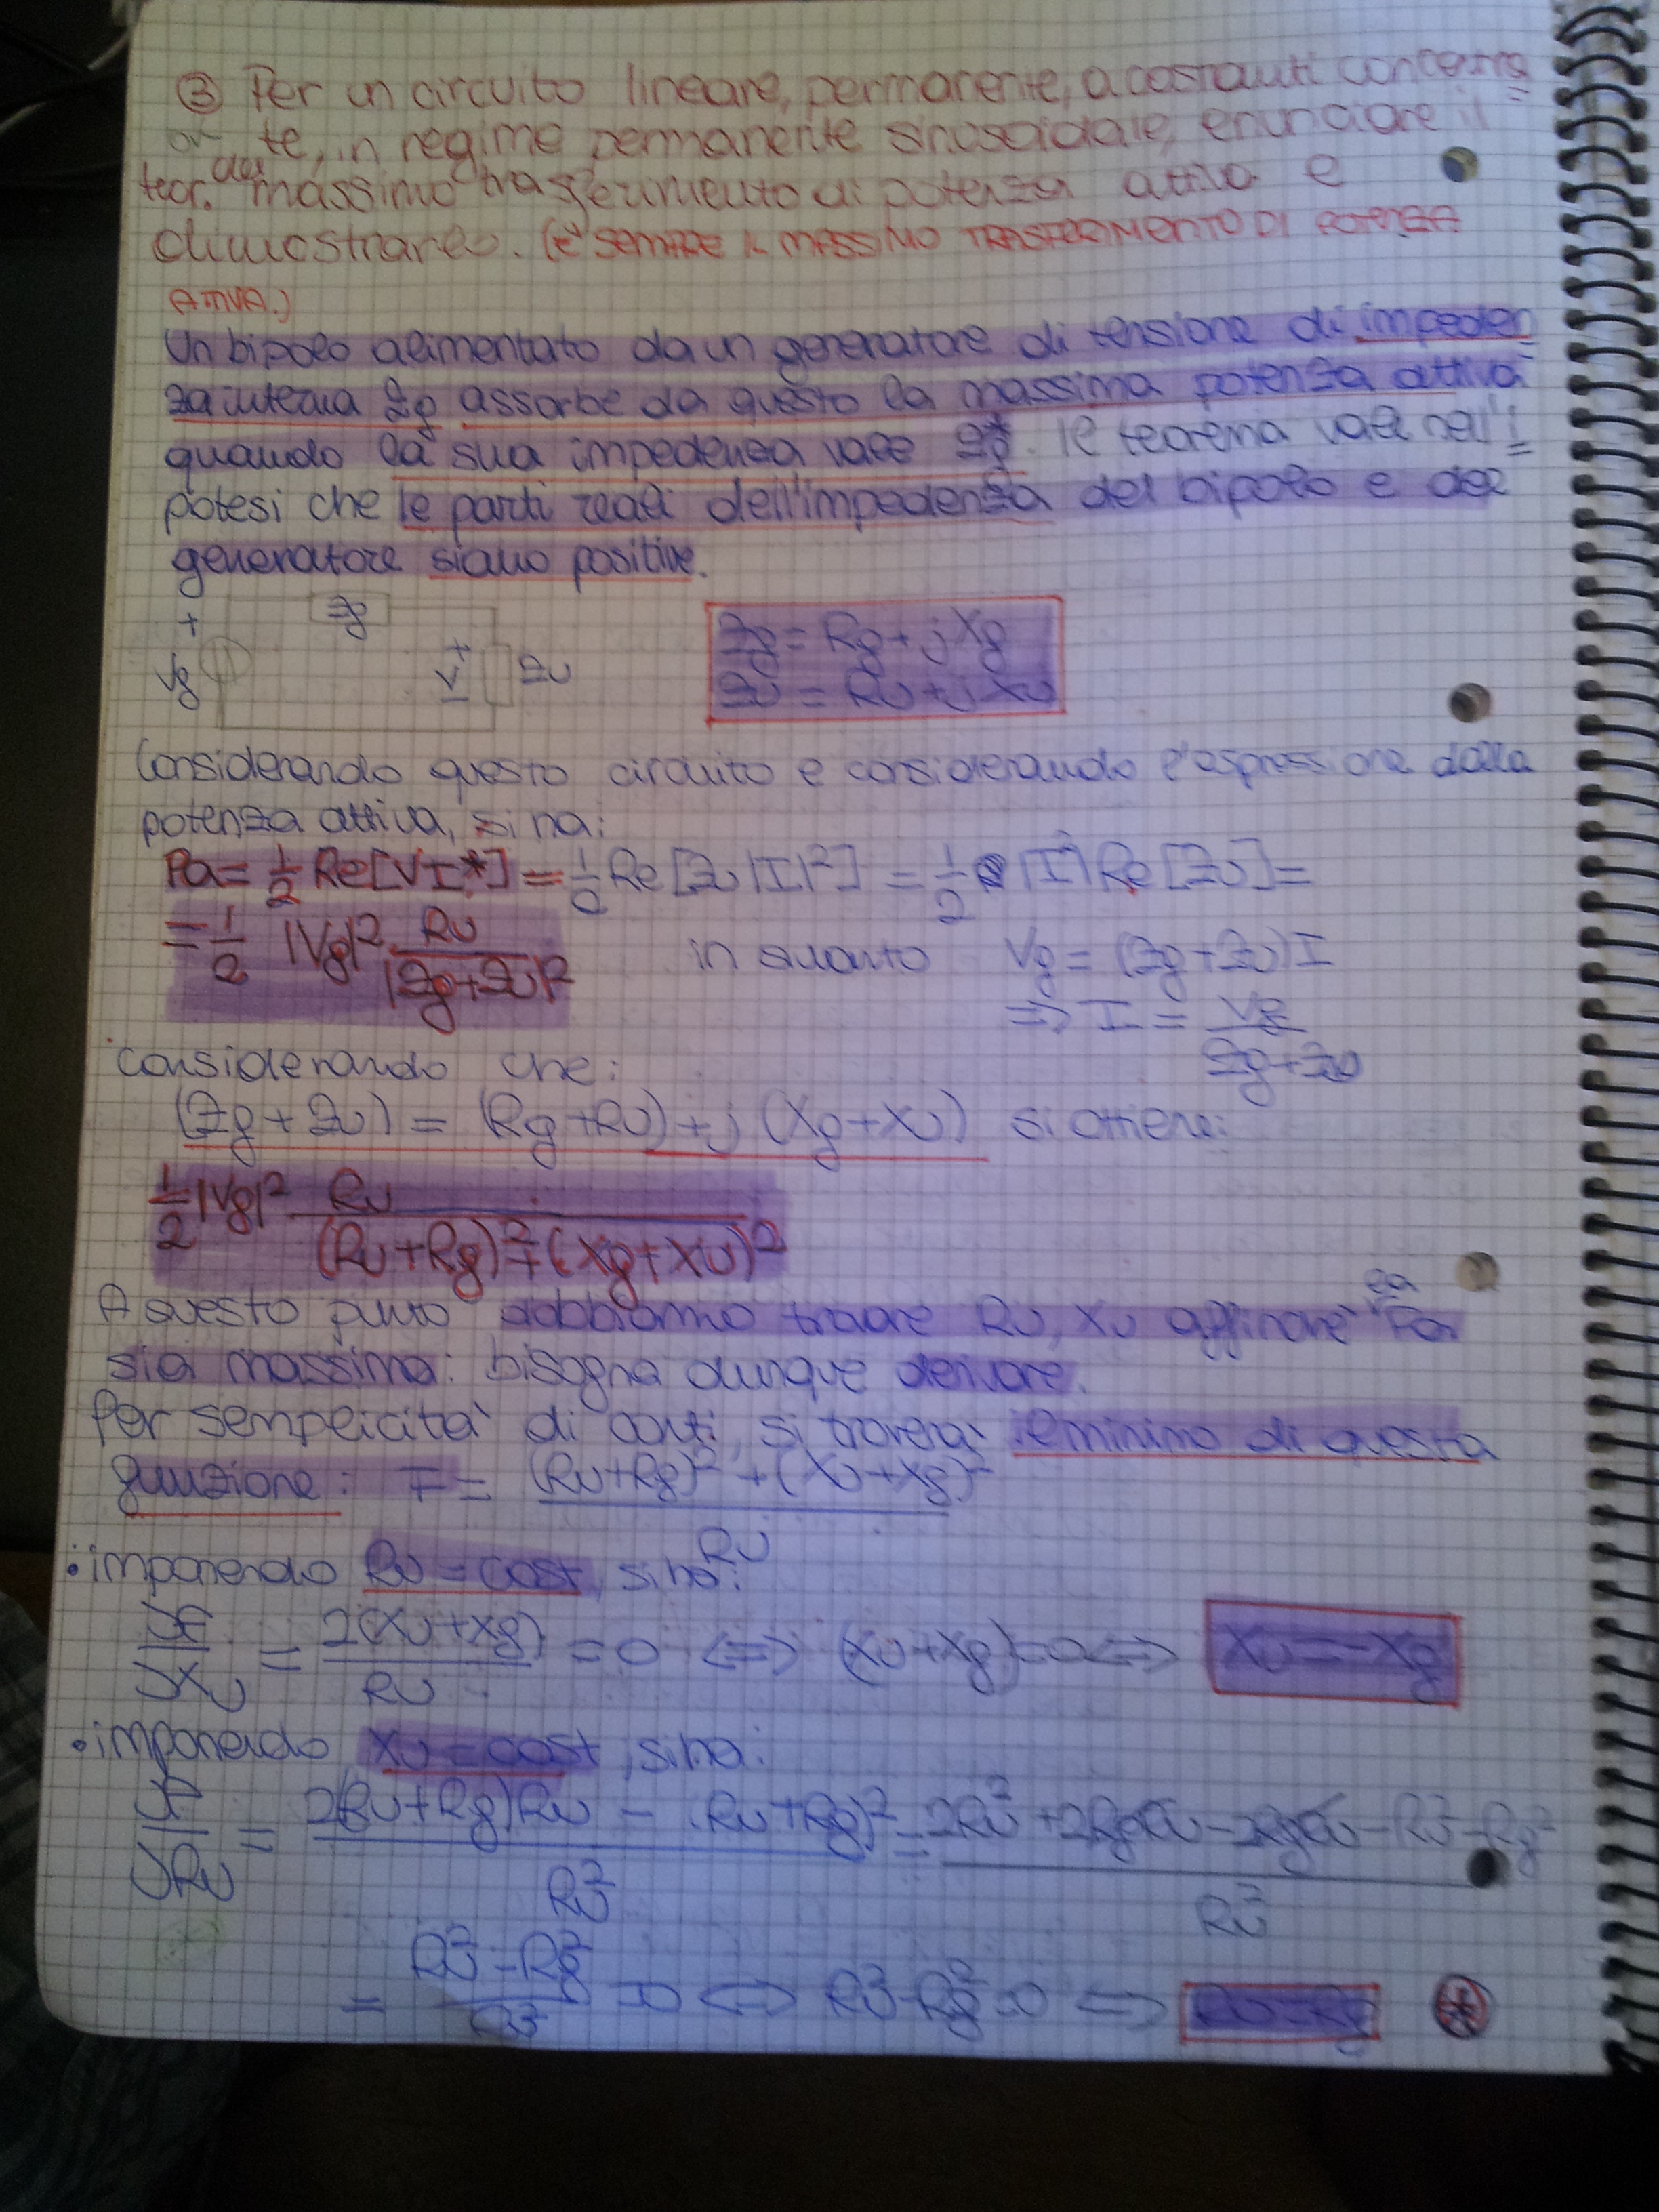 ③ Per un circuito lineare, permanente, a costanti concentra
te, in regime permanente sinusoidale, enunciare il
teor. del massimo trasferimento di potenza attiva e
dimostrarlo. (è SEMPRE IL MASSIMO TRASFERIMENTO DI POTENZA
ATTIVA.)
Un bipolo alimentato da un generatore di tensione di impeden
za interna Zg assorbe da questo la massima potenza attiva
quando la sua impedenza vale Zg*. Il teorema vale nell'i
potesi che le parti reali dell'impedenza del bipolo e del
generatore siano positive.
+ Zg
Vg + V - Zu
Zg = Rg + jXg
Zu = Ru + jXu
Considerando questo circuito e considerando l'espressione della
potenza attiva, si ha:
Pa = 1/2 Re[VI*] = 1/2 Re[Zu |I|²] = 1/2 |I|² Re[Zu] =
= 1/2 |Vg|² Ru / |Zg+Zu|² in quanto Vg = (Zg+Zu)I
=> I = Vg / Zg+Zu
considerando che:
(Zg + Zu) = (Rg+Ru)+j(Xg+Xu) si ottiene:
1/2 |Vg|² Ru / (Ru+Rg)²+(Xg+Xu)²
A questo punto dobbiamo trovare Ru, Xu affinché la Pa
sia massima: bisogna dunque derivare.
Per semplicità di conti, si troverà il minimo di questa
funzione: F = (Ru+Rg)² + (Xu+Xg)² / Ru
• imponendo Ru = cost, si ha:
∂F/∂Xu = 2(Xu+Xg) / Ru = 0 <=> (Xu+Xg)=0 <=> Xu = -Xg
• imponendo Xu = cost, si ha:
∂F/∂Ru = 2(Ru+Rg)Ru - (Ru+Rg)² / Ru² = 2Ru² + 2RgRu - 2RgRu - Ru² - Rg² / Ru²
= Ru² - Rg² / Ru² = 0 <=> Ru² - Rg² = 0 <=> Ru = Rg ⊛